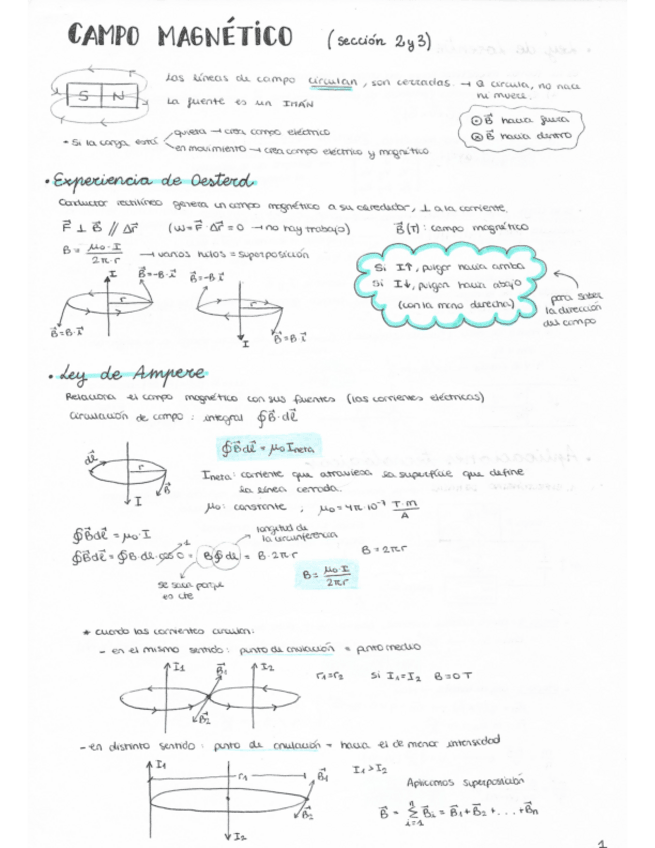 CAMPO MAGNÉTICO (sección 2 y 3)
Las líneas de campo circulan, son cerradas. → a circula, no nace ni muere.
S N
La fuente es un IMÁN
⊙ B⃗ hacia fuera
⊗ B⃗ hacia dentro
* Si la carga está
quieta → crea campo eléctrico
en movimiento → crea campo eléctrico y magnético
• Experiencia de Oesterd
Conductor rectilíneo genera un campo magnético a su alrededor, ⊥ a la corriente.
F⃗ ⊥ B⃗ // Δr⃗ (W = F⃗ · Δr⃗ = 0 → no hay trabajo) B⃗ (T) : campo magnético
B = μ₀·I / 2π·r → varios hilos = superposición
Si I↑, pulgar hacia arriba
Si I↓, pulgar hacia abajo
(con la mano derecha)
para saber la dirección del campo
I B⃗=-B·i⃗ B⃗=-B·i⃗
r r
B⃗=B·i⃗ I B⃗=B·i⃗
• Ley de Ampere
Relaciona el campo magnético con sus fuentes (las corrientes eléctricas)
Circulación de campo : integral ∮B⃗·dl⃗
∮B⃗dl⃗ = μ₀ Ineta
dl⃗ r B⃗ I
Ineta : corriente que atraviesa la superficie que define
la línea cerrada.
μ₀ : constante ; μ₀ = 4π·10⁻⁷ T·m / A
∮B⃗dl⃗ = μ₀·I
longitud de la circunferencia
∮B⃗dl⃗ = ∮B·dl·cos 0 = B∮dl = B·2πr B = 2πr
1
se saca porque es cte
B = μ₀·I / 2πr
* cuando las corrientes circulan:
- en el mismo sentido : punto de anulación = punto medio
I₁ B⃗₁ I₂ r₁=r₂ Si I₁=I₂ B=0T
B⃗₂
- en distinto sentido : punto de anulación = hacia el de menor intensidad
I₁ r₁ B⃗₁ I₁>I₂
Aplicamos superposición
B⃗₂ B⃗ = Σ B⃗ᵢ = B⃗₁+B⃗₂+...+B⃗n
n i=1
I₂
1